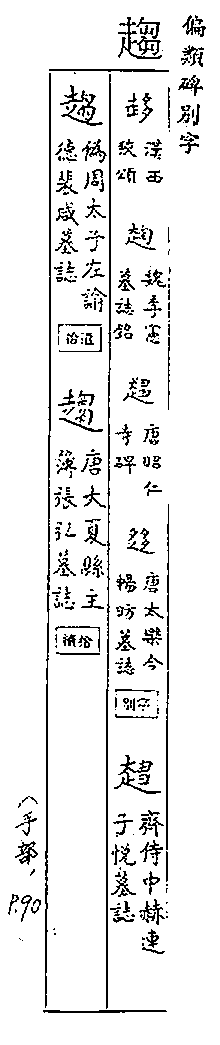 偏類碑別字
趨
趍 漢西狹頌
趋 魏李憲墓誌銘
趨 唐昭仁寺碑
趍 唐太樂令楊昉墓誌
別字
趋 齊侍中赫連子悅墓誌
趋 偽周太子左諭德裴咸墓誌
拾遺
趨 唐大夏縣主簿張弘墓誌
拾遺
(手部, P.90